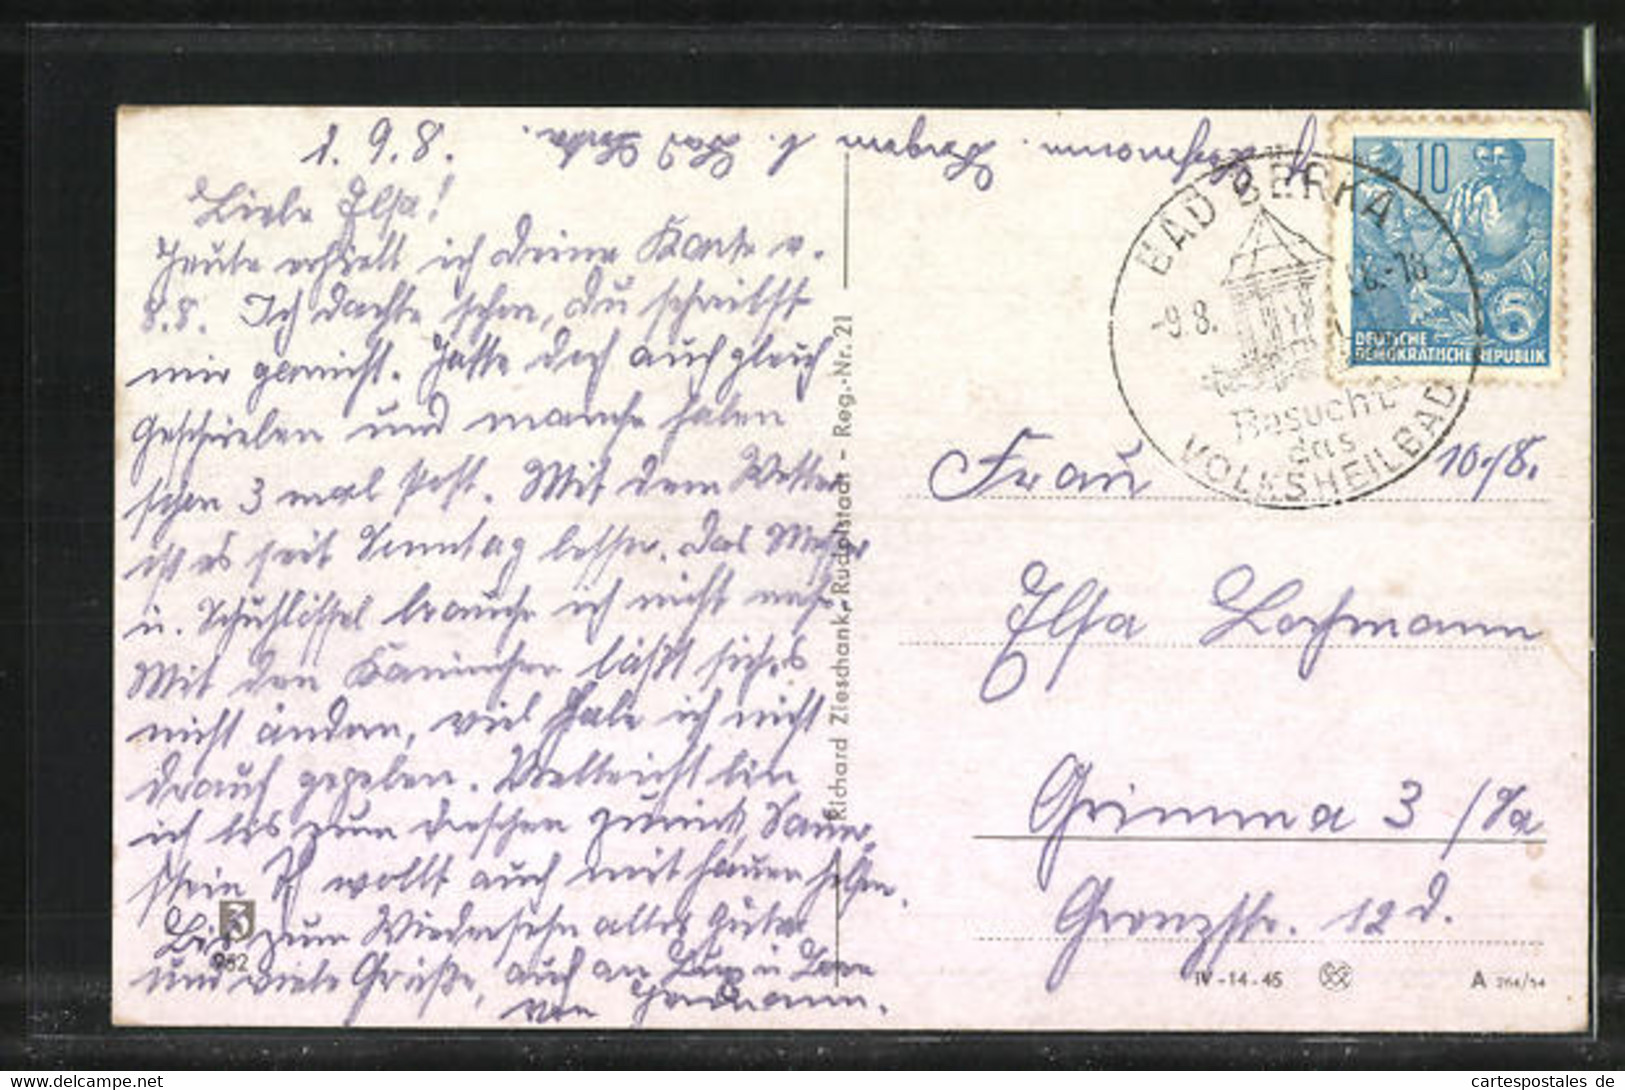 1. 9. 8.
Liebe Ilse!
Heute erhielt ich deine Karte v.
8.8. Ich dachte schon, du schreibst
mir garnicht. Hatte doch auch gleich
geschrieben und manche haben
schon 3 mal Post. Mit dem Wetter
ist es seit Sonntag besser. Das Messer
u. Schuhlöffel brauche ich nicht mehr.
Mit den Kaninchen läßt sichs
nicht ändern, viel habe ich nicht
drauf gegeben. Vielleicht bin
ich bis zum dreschen zurück,
wollt auch mit helfen.
Bis zum Wiedersehn alles Gute
und viele Grüße, auch an u.
von Hermann.
b. Bad Berka.
BAD BERKA
-9.8.
-18
Besucht
das
VOLKSHEILBAD
10
5
DEUTSCHE
DEMOKRATISCHE REPUBLIK
10./8.
Frau
Ilse Lochmann
Grimma 3 /Sa
Grenzstr. 12 d.
Richard Zieschank, Rudolstadt - Reg.-Nr. 21
982
IV-14-45
A 264/54
cartespostales de